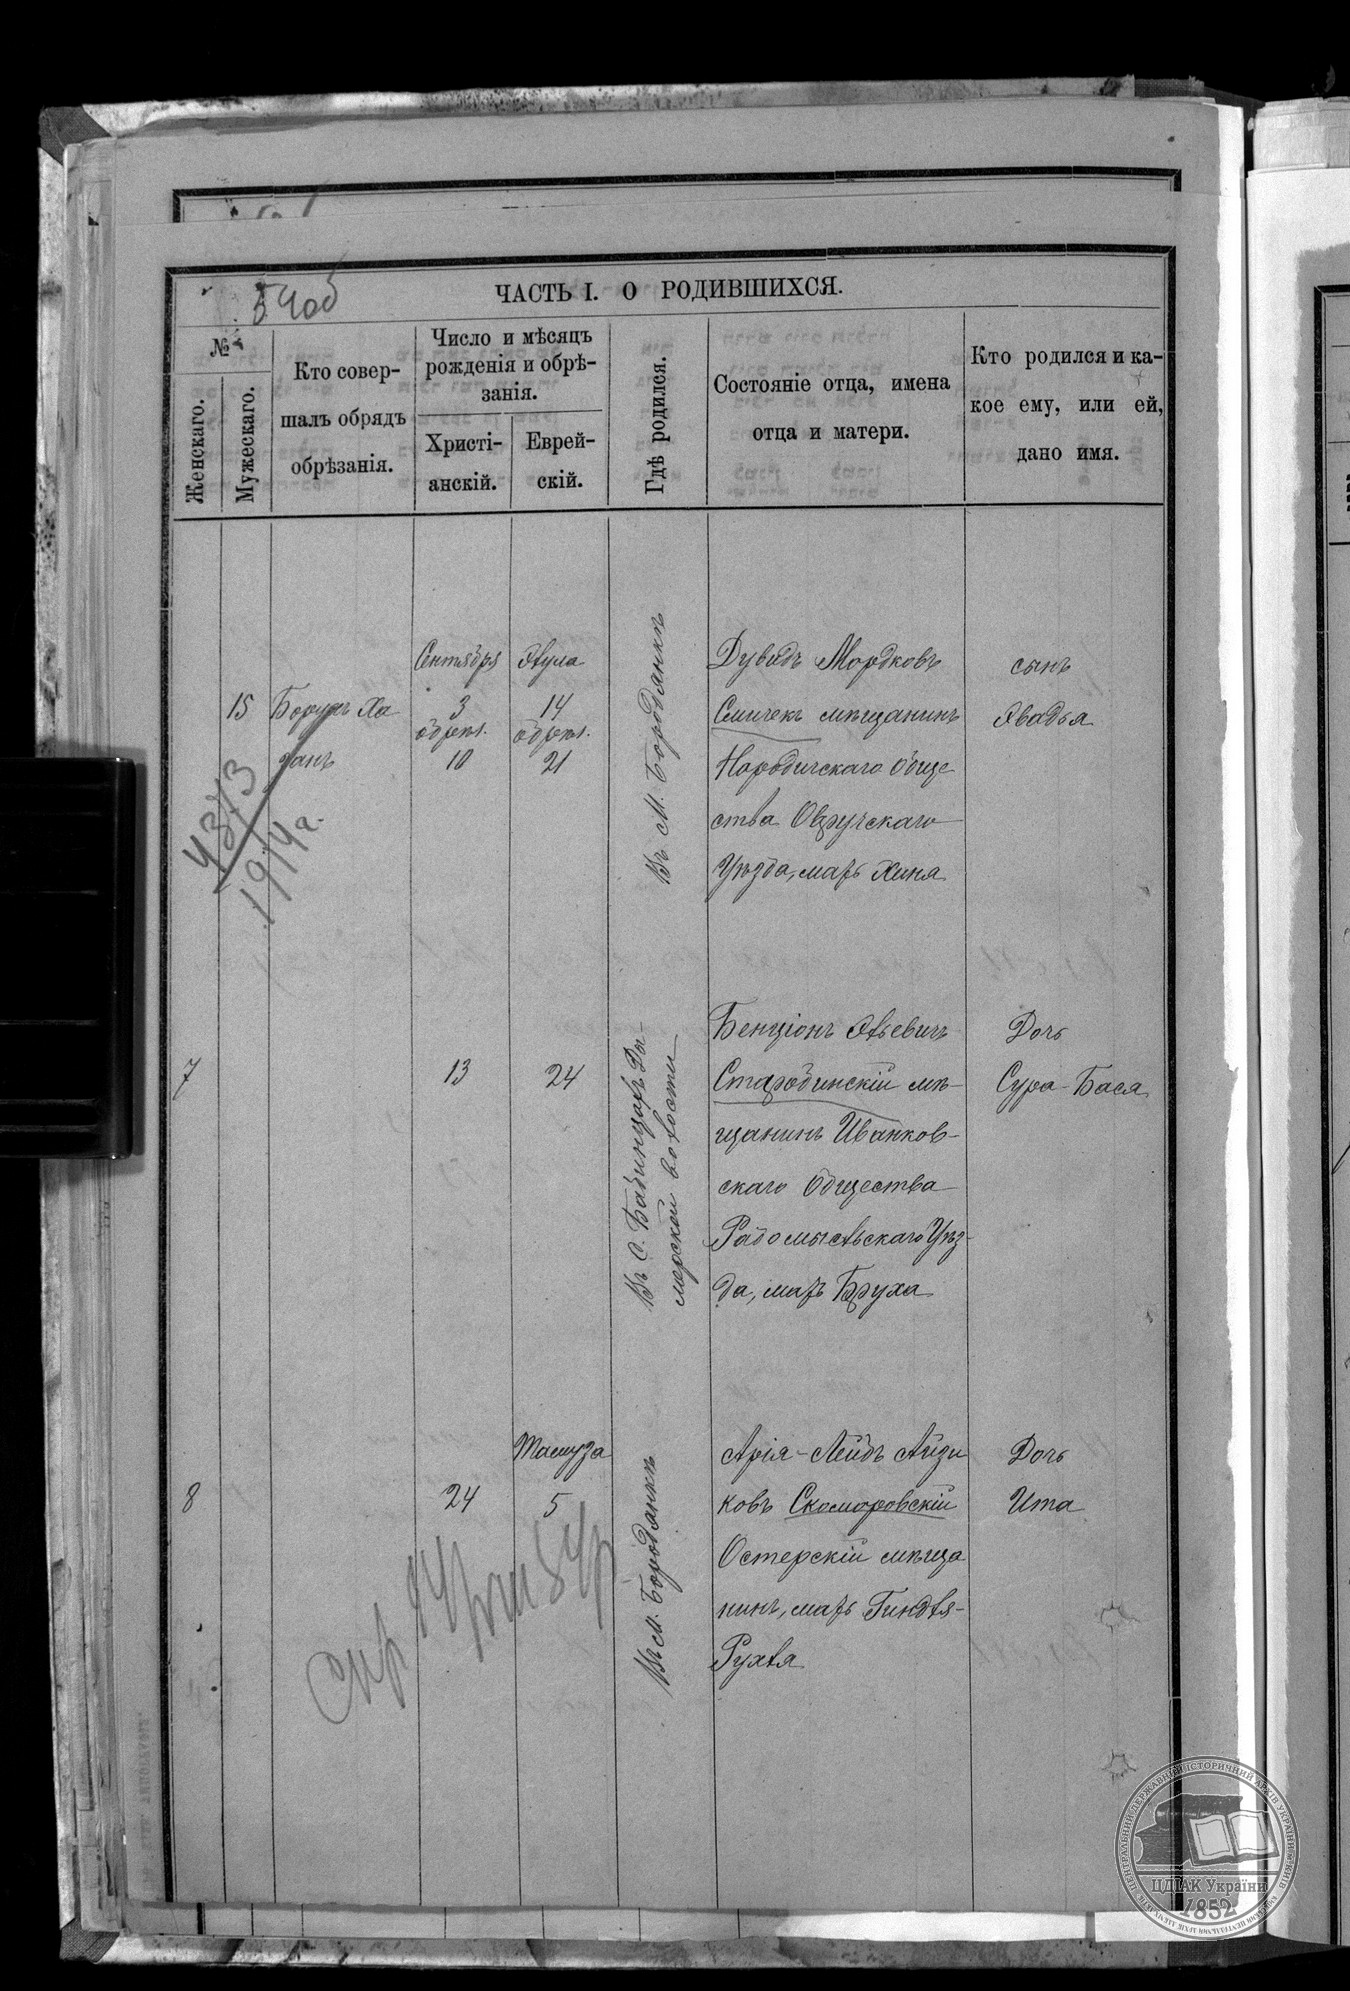 54об
ЧАСТЬ I. О РОДИВШИХСЯ.
№
Женскаго.
Мужескаго.
Кто совер-
шалъ обрядъ
обрѣзанія.
Число и мѣсяцъ
рожденія и обрѣ-
занія.
Христі-
анскій.
Еврей-
скій.
Гдѣ родился.
Состояніе отца, имена
отца и матери.
Кто родился и ка-
кое ему, или ей,
дано имя.
15
Борухъ Ха
занъ
Сентября
3
обрѣз.
10
Элула
14
обрѣз.
21
Въ м. Бородянкѣ
Дувидъ Мордковъ
Смичекъ мѣщанинъ
Народичскаго Обще
ства Овручскаго
Уѣзда, мать Хиня
сынъ
Овадья
4373
1914 г.
7
13
24
Въ с. Бабинцахъ Ды-
мерской волости
Бенціонъ Эльевичъ
Стародинскій мѣ-
щанинъ Иванков-
скаго Общества
Радомысльскаго Уѣз-
да, мать Бруха
Дочь
Сура-Бася
8
24
Тамуза
5
Въ м. Бородянкѣ
Арія-Лейбъ Айзи
ковъ Скоморовскій
Остерскій мѣща
нинъ, мать Гиндля-
Рухля
Дочь
Ита
ЦЕНТРАЛЬНИЙ ДЕРЖАВНИЙ ІСТОРИЧНИЙ АРХІВ УКРАЇНИ, М. КИЇВ
ЦДІАК України
1852